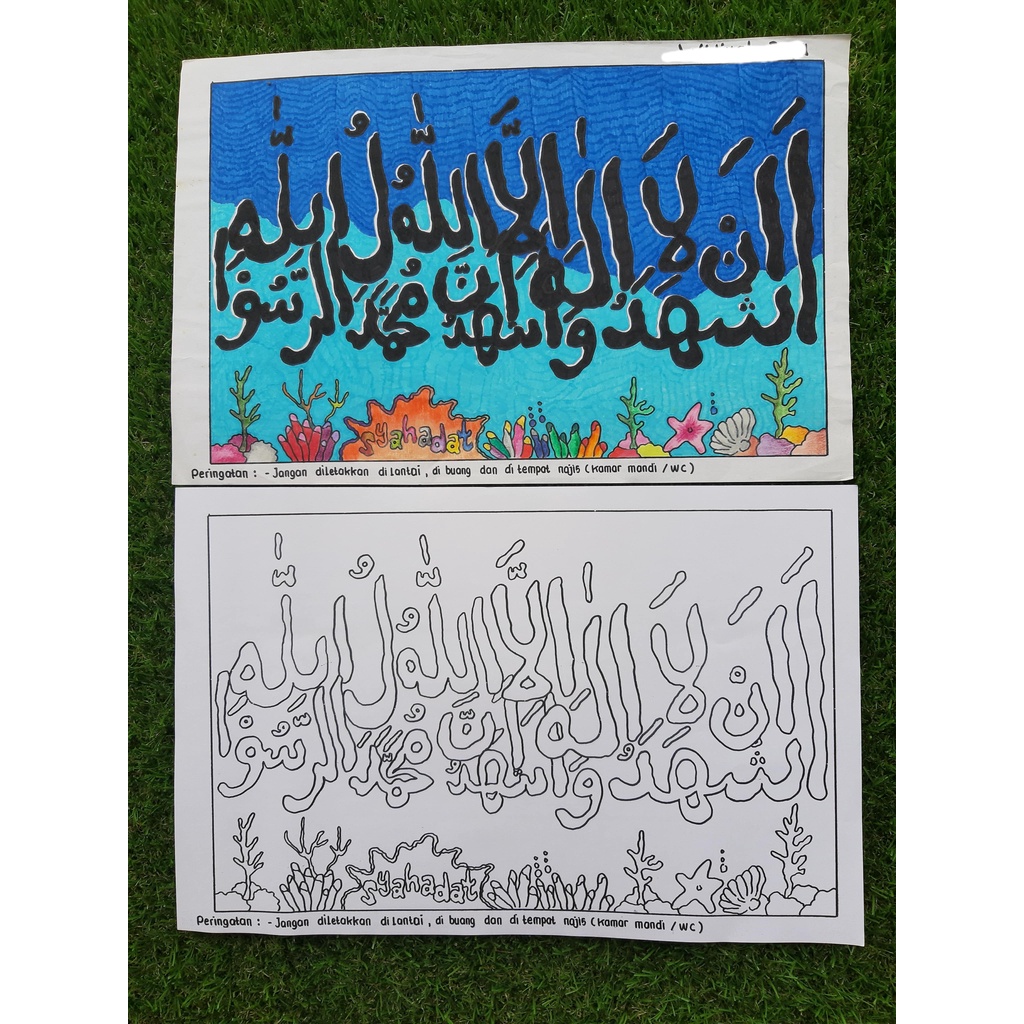 اَشْهَدُ اَنْ لَا اِلٰهَ اِلَّا اللّٰهُ وَاَشْهَدُ اَنَّ مُحَمَّدَ الرَّسُوْلُ اللّٰهِ
syahadat
Peringatan : - Jangan diletakkan dilantai, di buang dan di tempat najis (kamar mandi / WC)
اَشْهَدُ اَنْ لَا اِلٰهَ اِلَّا اللّٰهُ وَاَشْهَدُ اَنَّ مُحَمَّدَ الرَّسُوْلُ اللّٰهِ
syahadat
Peringatan : - Jangan diletakkan dilantai, di buang dan di tempat najis (kamar mandi / WC)